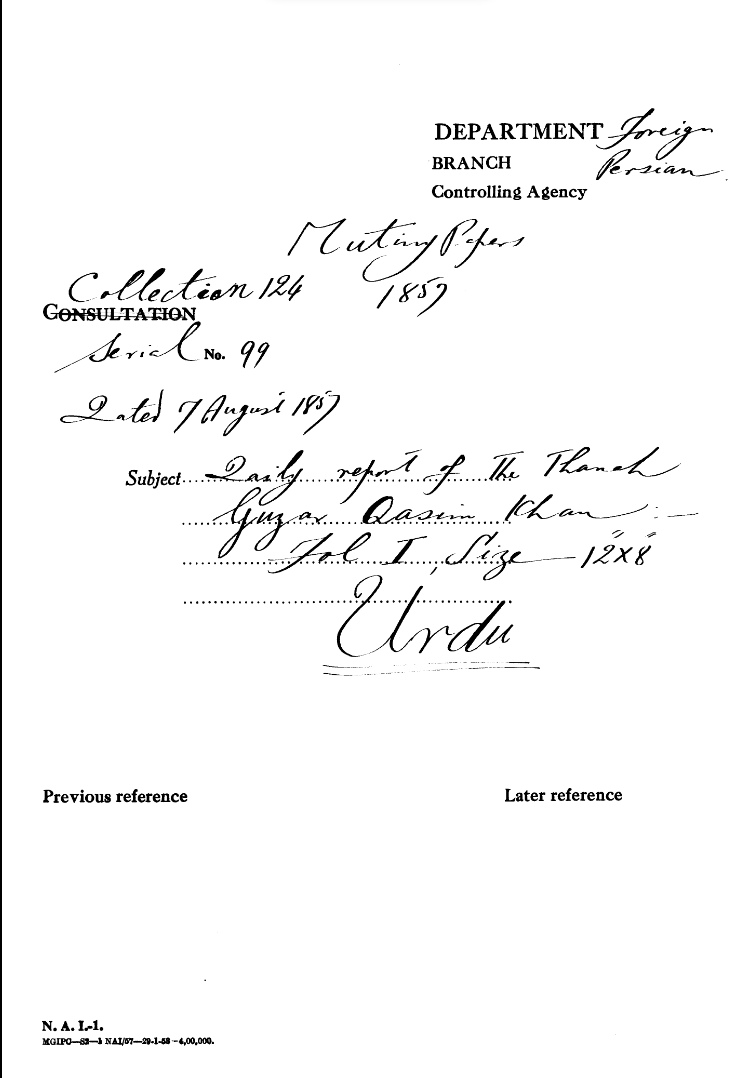 DEPARTMENT Foreign
BRANCH Persian
Controlling Agency
Mutiny Papers
Collection 124 1857
CONSULTATION
Serial No. 99
Dated 7 August 1857
Subject Daily report of the Thanah
Guzar Qasim Khan :—
Fol I, Size — 12"x8"
Urdu
Previous reference
Later reference
N. A. I.-1.
MGIPC—S2—1 NAI/57—29-1-58—4,00,000.